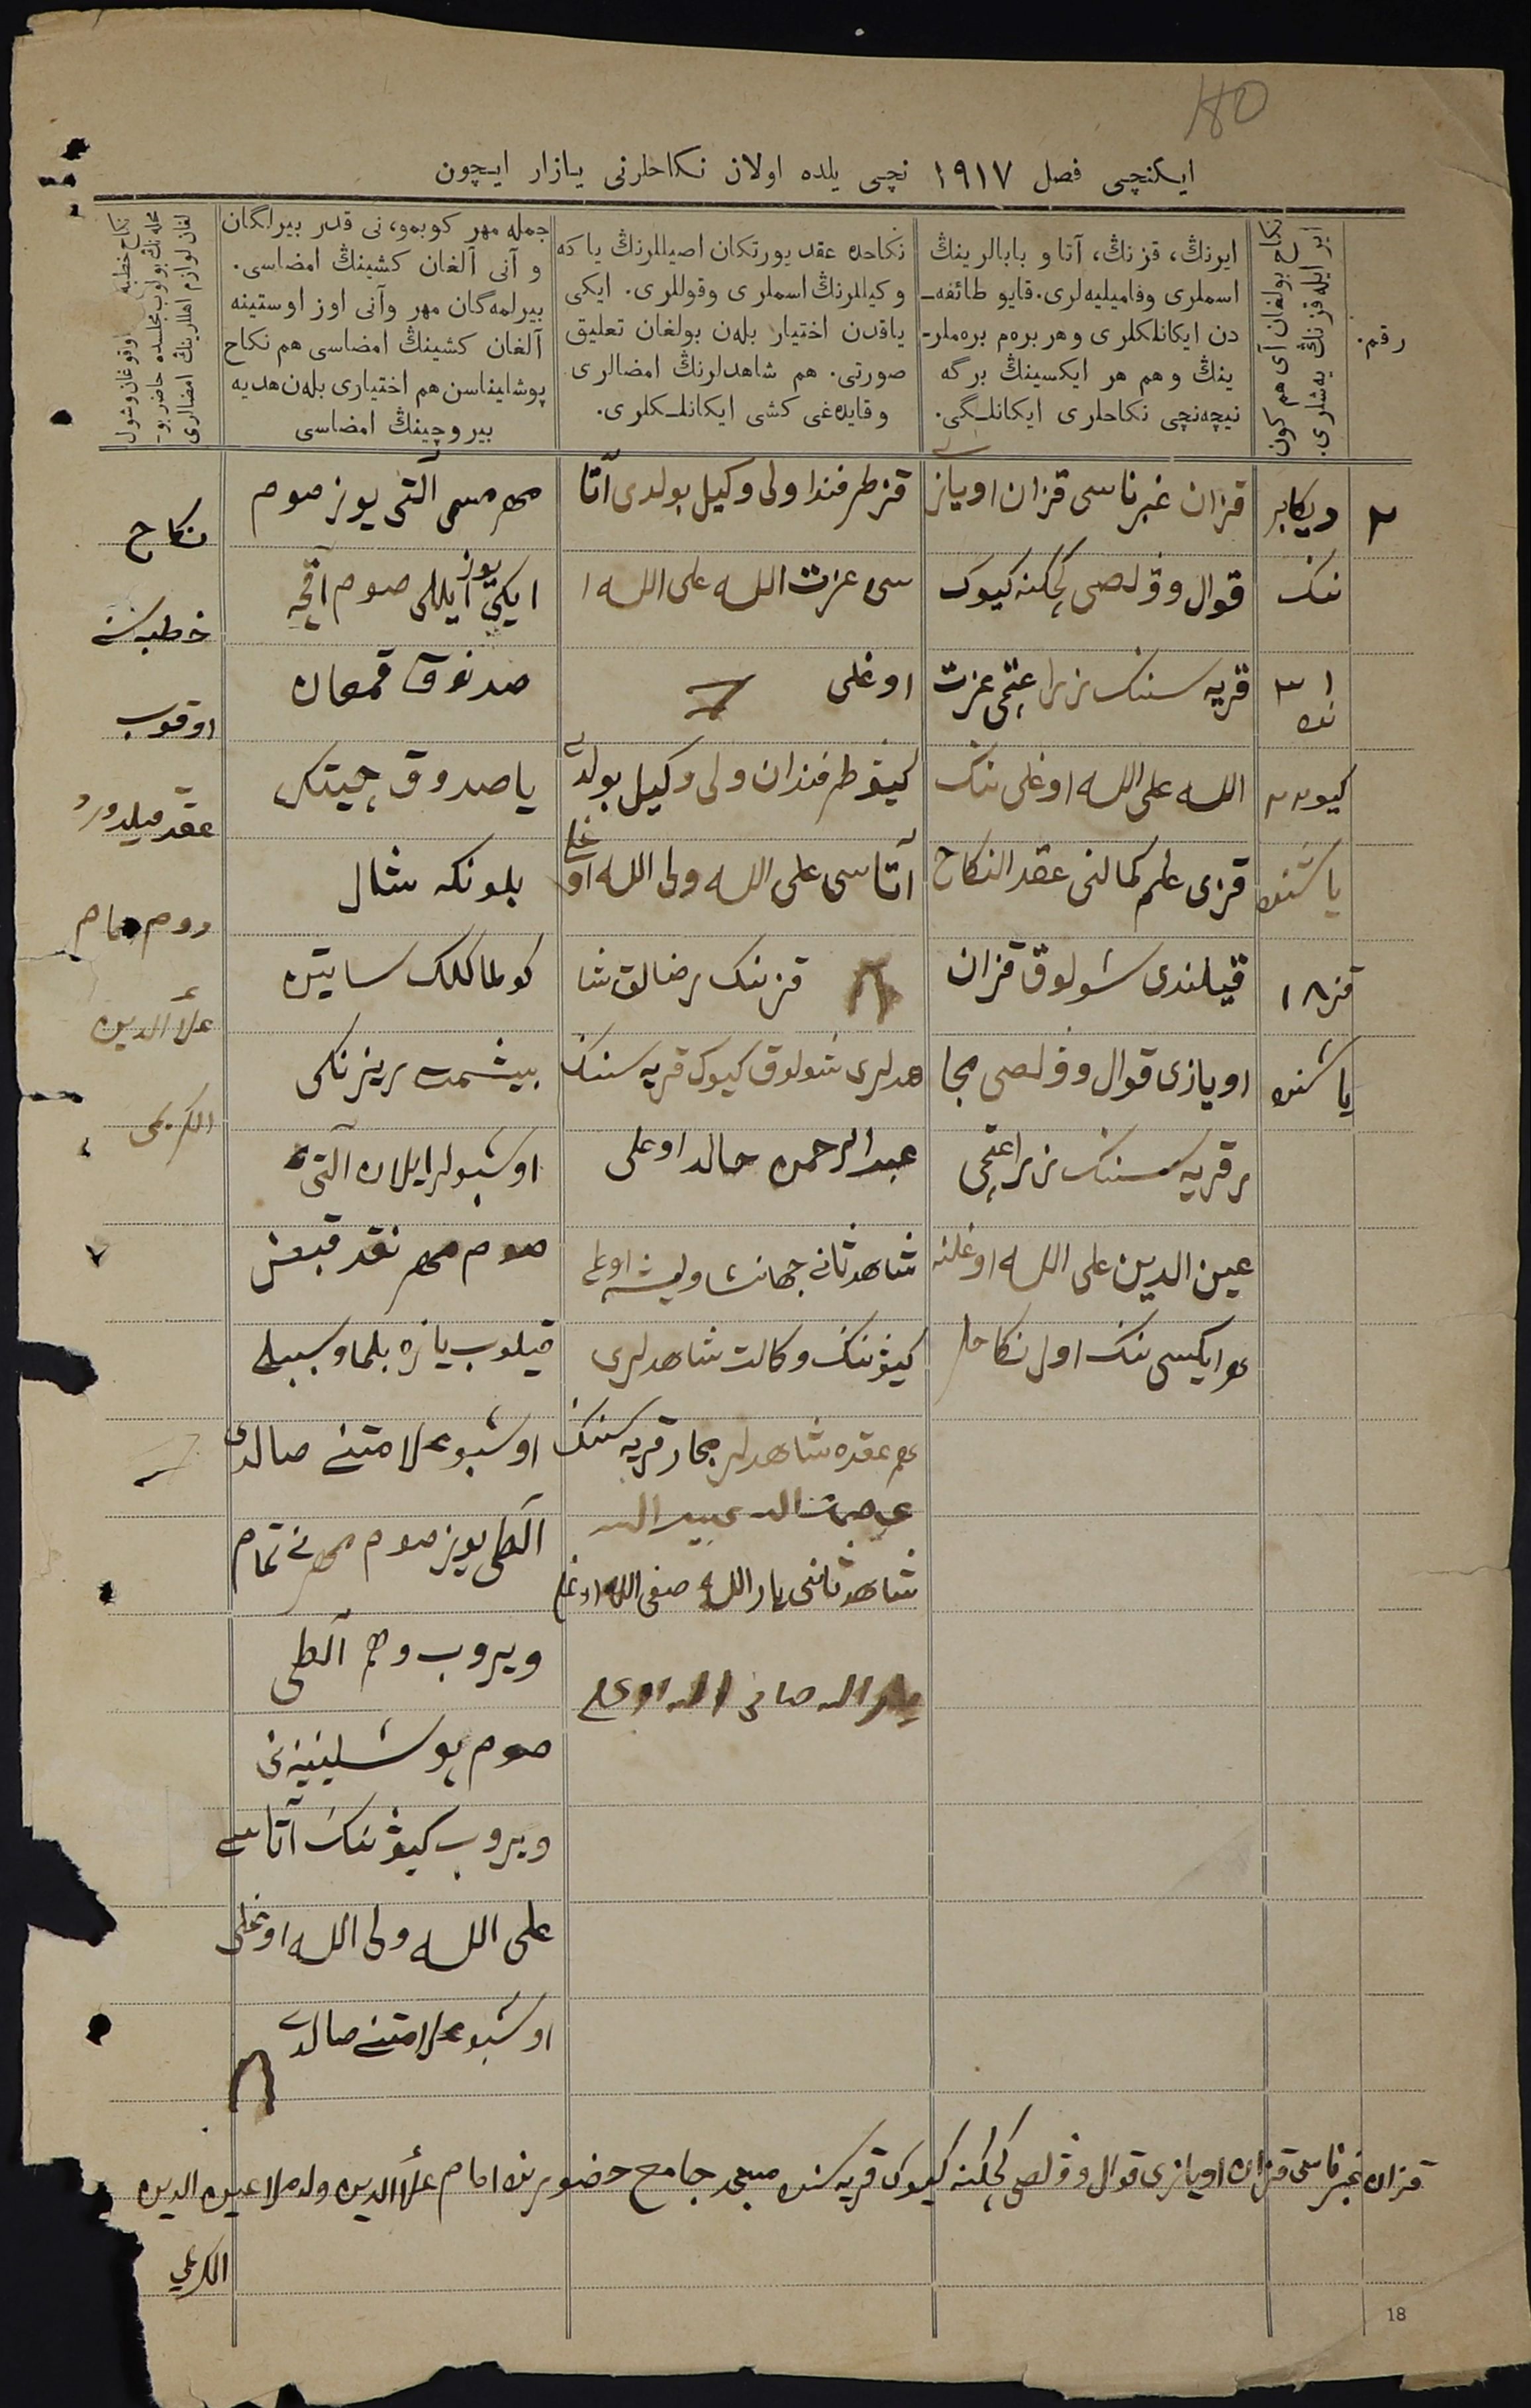 180
ایکنچی فصل ۱۹۱۷ نچی یلده اولان نکاحلرنی یازار ایچون
رقم.
نکاح بولغان آی هم کون
ایر ایله قزنڭ یه‌شلری.
ایرنڭ، قزنڭ، آتا و بابالرینڭ
اسملری وفامیلیه‌لری. قایو طائفه-
دن ایکانلکلری وهر بره‌م بره‌ملر-
ینڭ وهم هر ایکسینڭ برگه
نیچه‌نچی نکاحلری ایکانلـگی.
نکاحده عقد یورتکان اصیللرنڭ یا که
وکیللرنڭ اسملری وقوللری. ایکی
یاقدن اختیار بله‌ن بولغان تعلیق
صورتی. هم شاهدلرنڭ امضالری
وقایده‌غی کشی ایکانلـکلری.
جمله مهر کوبمو، نی قدر بیرلگان
و آنی آلغان کشینڭ امضاسی.
بیرلمه‌گان مهر وآنی اوز اوستینه
آلغان کشینڭ امضاسی هم نکاح
پوشلیناسن هم اختیاری بله‌ن هدیه
بیروچینڭ امضاسی
نکاح خطبه‌ اوقوغان وشول
محله‌نڭ بولوب مجلسده حاضر بو-
لغان لوازم اهللرینڭ امضالری
۲
دیکابر
ننک
۳۱
نده
کیو ۲۲
یاشنده
قز ۱۸
یاشنده
قزان غبرناسی قزان اویاز
قوال وولصی کچکنه کیوک
قریه سننک زراعتچی عزت
الله علی الله اوغلی ننک
قزی علم کمالنی عقد النکاح
قیلندی شولوق قزان
اویازی قوال وولصی مجا
ر قریه سننک زراعتچی
عین الدین علی الله اوغلنه
هر ایکسی ننک اول نکاحلر
قز طرفندا ولی وکیل بولدی آتا
سی عزت الله علی الله ا
اوغلی
کیو طرفندان ولی وکیل بولدی
آتاسی علی الله ولی الله اوغلی
قزننک رضالق شا
هدلری شولوق کیوک قریه سننک
عبد الرحمن خالد اوغلی
شاهد ثانی جهانشا ولیشه اوغلی
کیوننک وکالت شاهدلری
هم عقده شاهدلر مجار قریه سننک
عصمت الله عبید الله
شاهد ثانی یار الله صفی الله اوغلی
یار الله صافی الله اوغلی
مهر مسمی آلتی یوز صوم
ایکی یوز ایللی صوم آقچه
صدنوق قمغان
یاصدوق چیتک
بلونکه شال
کولماکلک ساتین
بیشمت ریزنکی
اوشبولر ایلان آلتی
صوم مهر نقد قبض
قیلوب یازه بلماو سببلی
اوشبو علامتنی صالدی
آلطی یوز صوم مهرنی تمام
ویروب وهم آلطی
صوم پوشلینه‌نی
ویروب کیوننک آتاسی
علی الله ولی الله اوغلی
اوشبو علامتنی صالدی
نکاح
خطبه‌سنی
اوقوب
عقد قیلدوردم
دوم امام
علاء الدین
الکریمی
قزان غبرناسی قزان اویازی قوال وولصی کچکنه کیوک قریه سنده مسجد جامع حضورینده امام علاء الدین ولد ملا عین الدین
الکریمی
18